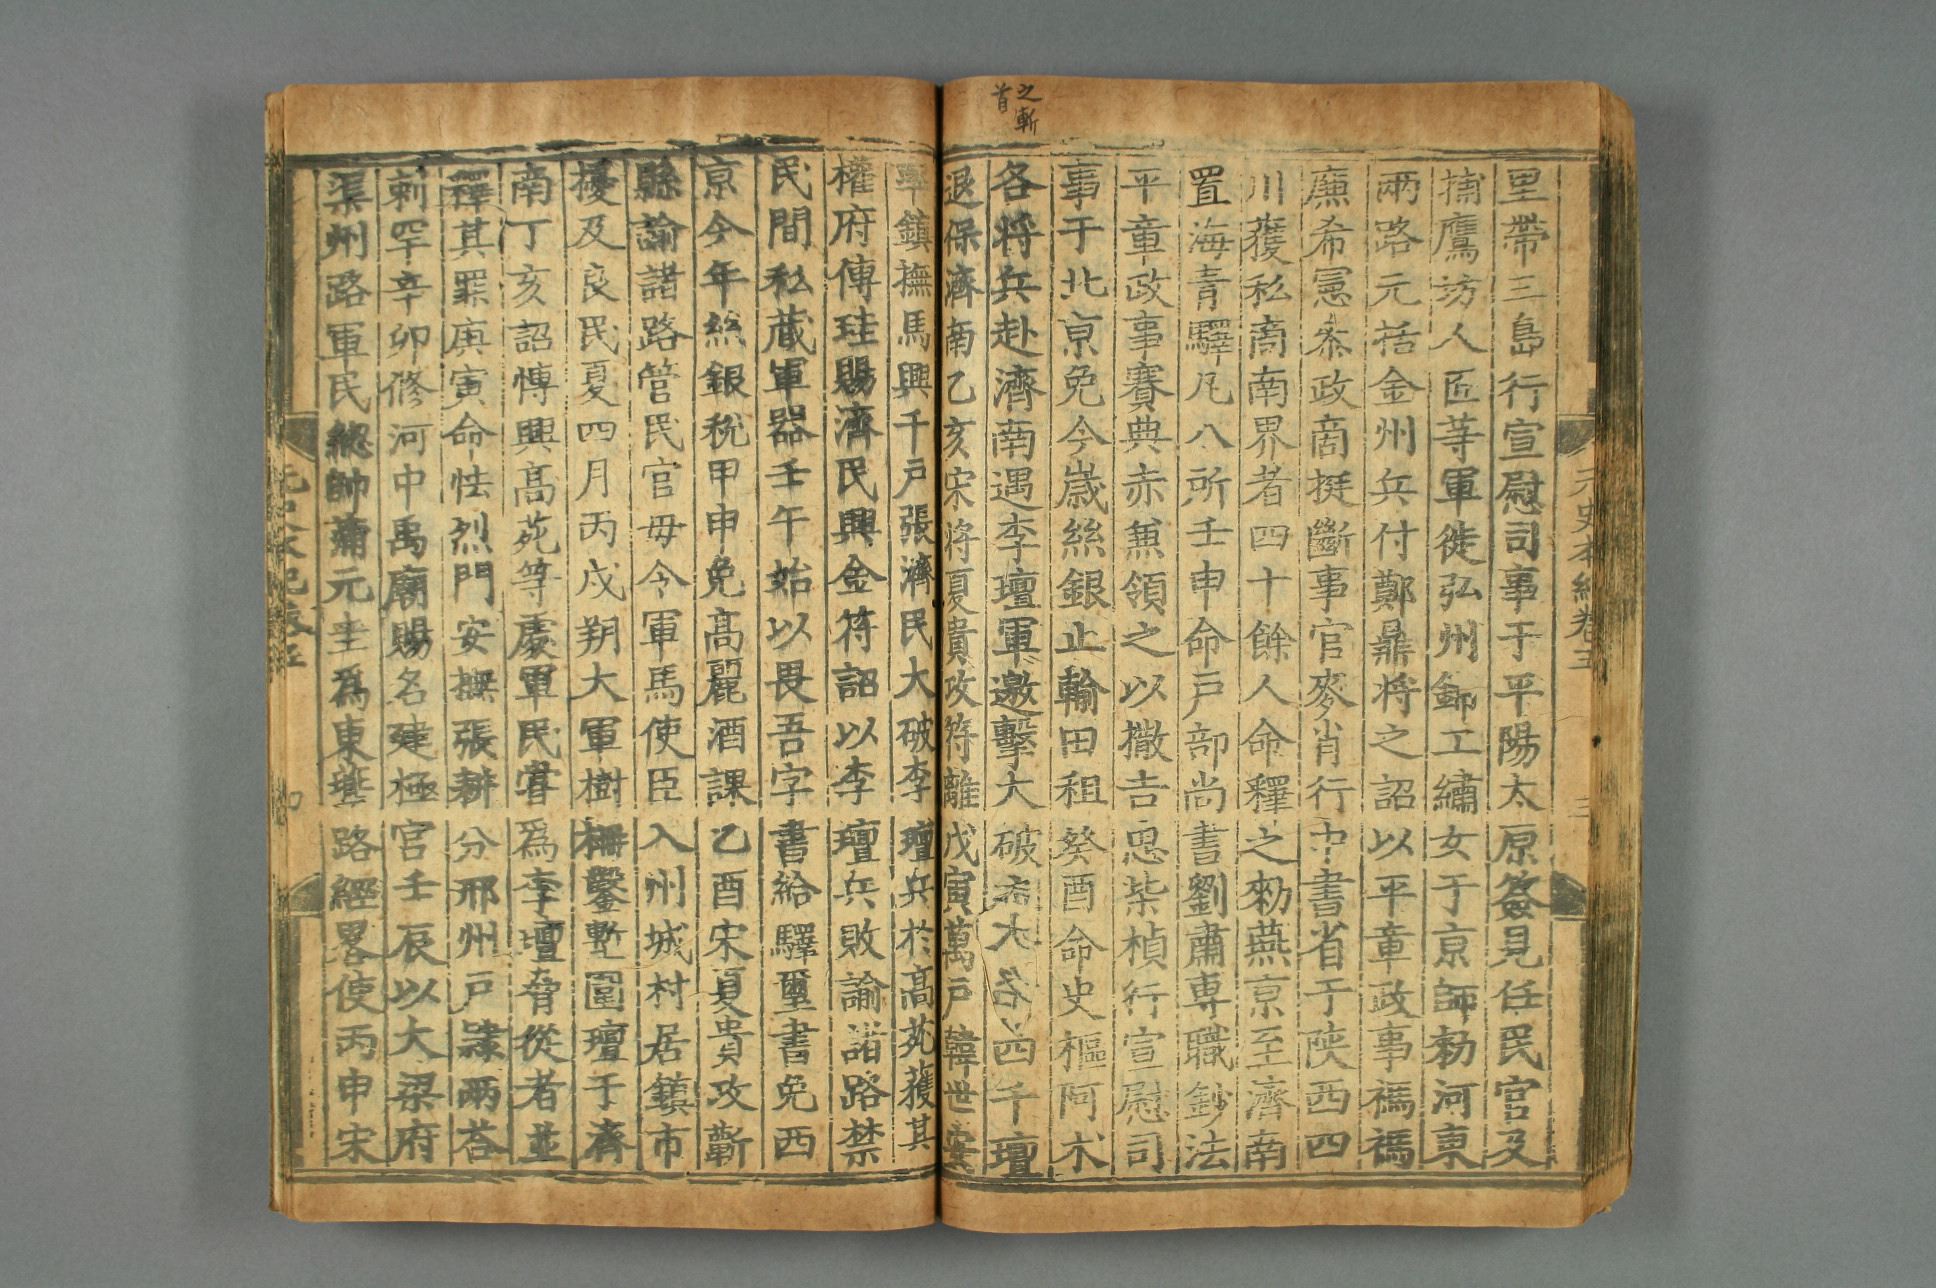 之斬
首
元史本紀卷五
三
里帶三島行宣慰司事于平陽太原簽見任民官及
捕鷹坊人匠等軍徙弘州錦工繡女于京師勑河東
兩路元括金州兵付鄭鼎將之詔以平章政事禡禡
廉希憲叅政商挺斷事官麥肖行中書省于陜西四
川獲私商南界者四十餘人命釋之勑燕京至濟南
置海青驛凡八所壬申命戶部尚書劉肅專職鈔法
平章政事賽典赤兼領之以撒吉思柴楨行宣慰司
事于北京免今歲絲銀止輸田租癸酉命史樞阿朮
各將兵赴濟南遇李璮軍邀擊大破 四千璮
退保濟南乙亥宋將夏貴攻符離戊寅萬戶韓世安
率鎮撫馬興千戶張濟民大破李璮兵於高苑獲其
權府傅珪賜濟民興金符詔以李璮兵敗諭諸路禁
民間私藏軍器壬午始以畏吾字書給驛璽書免西
京今年絲銀稅甲申免高麗酒課乙酉宋夏貴攻蘄
縣諭諸路管民官毋令軍馬使臣入州城村居鎮市
擾及良民夏四月丙戌朔大軍樹柵鑿塹圍璮于濟
南丁亥詔博興高苑等處軍民嘗爲李璮脅從者並
釋其罪庚寅命怯烈門安撫張耕分邢州戶隷兩荅
剌罕辛卯修河中禹廟賜名建極宮壬辰以大梁府
渠州路軍民總帥蒲元圭爲東夔路經畧使丙申宋